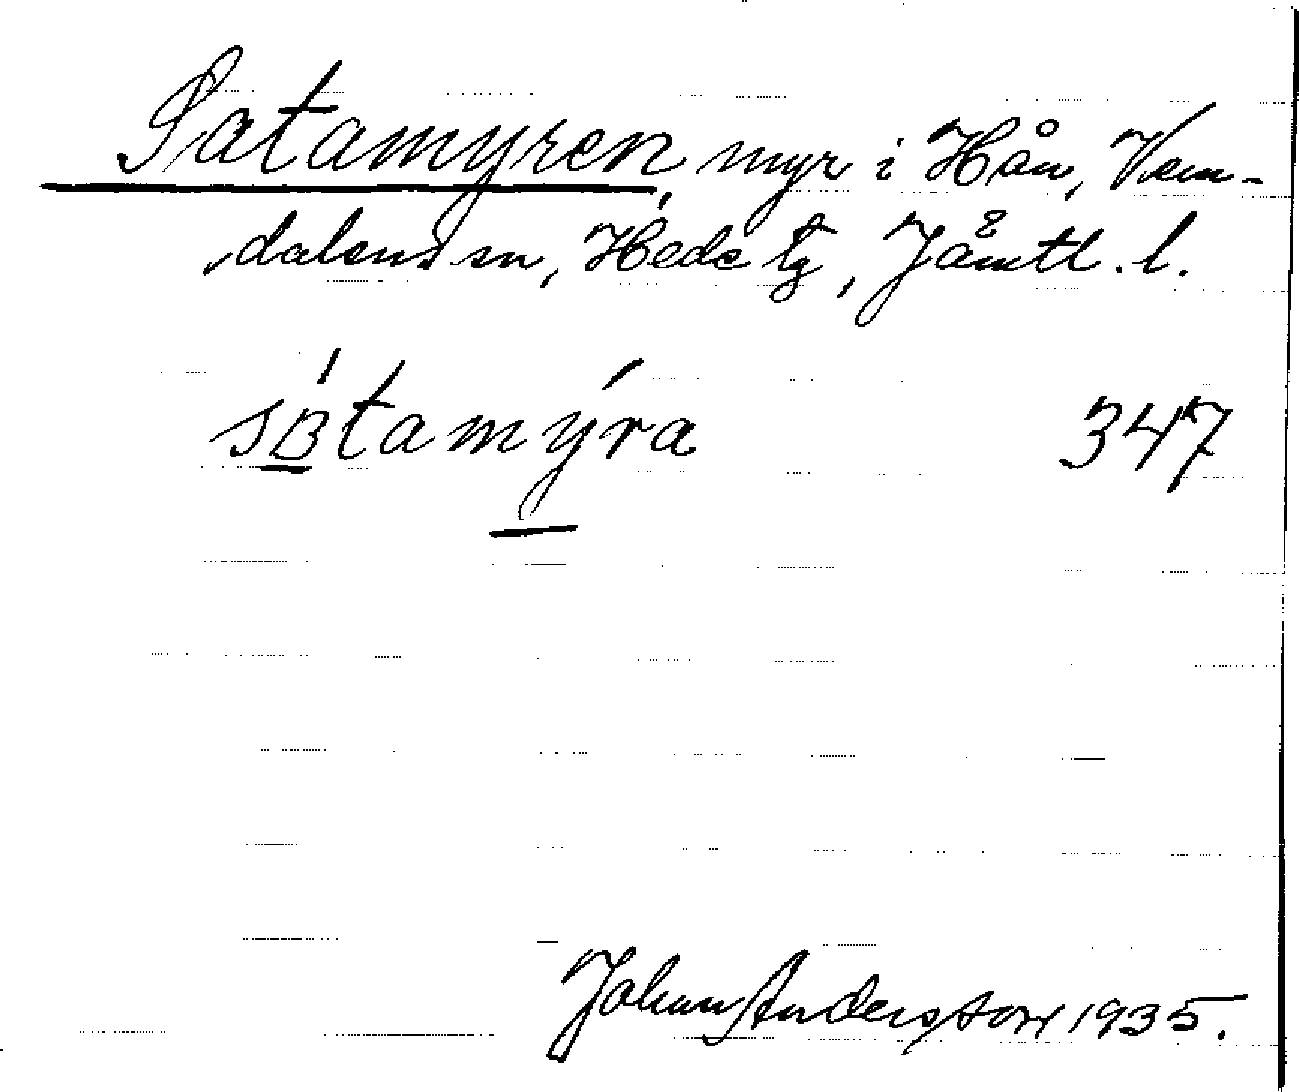 Satamyren, myr i Hån, Vem-
dalens sn, Hede tg, Jämtl. l.
sʙ́tamýra 347
Johan Andersson 1935.